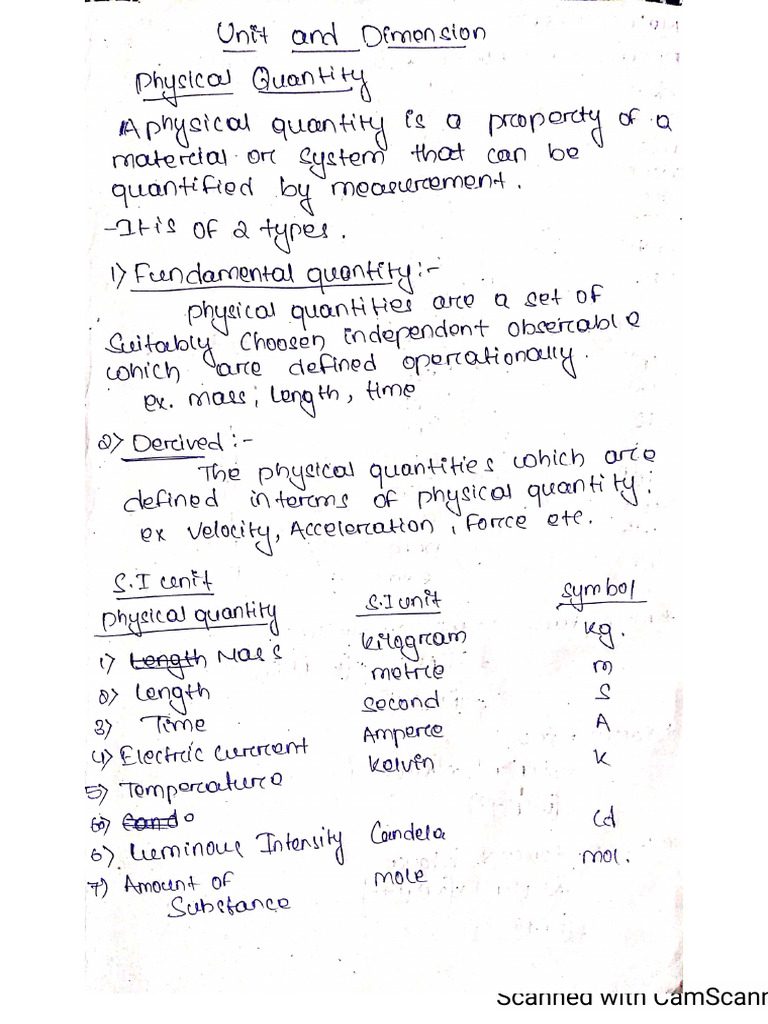 Unit and Dimension
Physical Quantity
A physical quantity is a property of a
material or system that can be
quantified by measurement.
-It is of 2 types.
1) Fundamental quantity:-
Physical quantities are a set of
Suitably Choosen independent observable
which are defined operationally.
ex. mass, length, time
2) Derived:-
The physical quantities which are
defined interms of physical quantity.
ex Velocity, Acceleration, Force etc.
S.I unit
Physical quantity S.I unit Symbol
1) Length Mass kilogram kg.
2) Length metre m
3) Time second S
4) Electric current Ampere A
5) Temperature Kelvin K
6) Cando
6) Luminous Intensity Candela Cd
7) Amount of mole mol.
Substance
Scanned with CamScann